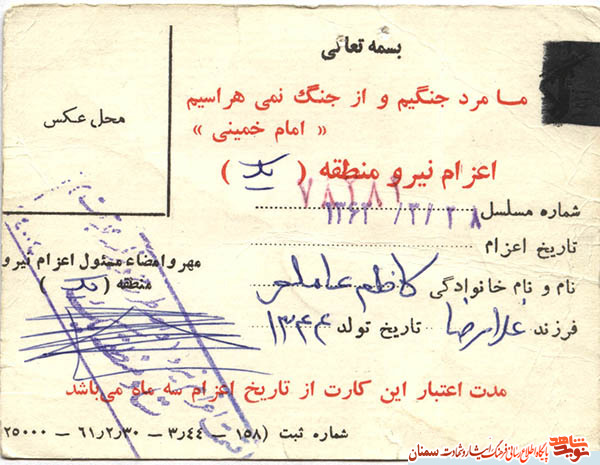 بسمه تعالی
ما مرد جنگیم و از جنگ نمی هراسیم
« امام خمینی »
محل عکس
اعزام نیرو منطقه ( یک )
شماره مسلسل ۷۸۲۸۲
۱۳۶۲ /۳/ ۲۸
تاریخ اعزام
مهر و امضاء مسئول اعزام نیرو
منطقه ( یک )
نام و نام خانوادگی کاظم
فرزند غلامرضا تاریخ تولد ۱۳۴۴
مدت اعتبار این کارت از تاریخ اعزام سه ماه می‌باشد
شماره ثبت (۱۵۸ – ۳ر۴۴ – ۳۰ر۲ر۶۱ – ۲۵۰۰۰
نوید شاهد
پایگاه اطلاع رسانی فرهنگ ایثار و شهادت سمنان